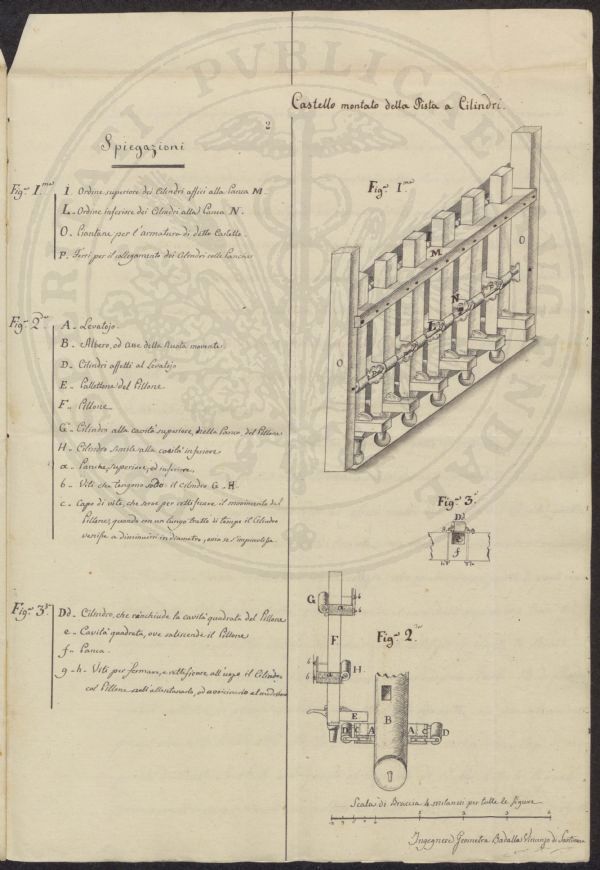 Castello montato della Pista a Cilindri.
2
Spiegazioni
Fig.ª I.ma
I. Ordine superiore dei Cilindri affissi alla Panca M.
L. Ordine inferiore dei Cilindri alla Panca N.
O. Piantane per l'armatura di detto Castello
P. Ferri per il collegamento dei Cilindri colle Panche
Fig.ª 2.ª
A. Levatojo
B. Albero, od asse della Ruota movente
D. Cilindri affetti al Levatojo
E. Pallettone del Pillone
F. Pillone
G. Cilindro alla cavità superiore, della Panca, del Pillone
H. Cilindro simile alla cavità inferiore
a. Panche, superiore, ed inferiore
b. Viti che tengono il cilindro G. H.
c. Capo di vite, che serve per rettificare il movimento del
Pillone, quando con un lungo tratto di tempo il Cilindro
venisse a diminuirsi in diametro, ovia
Fig.ª 3.ª
Dd. Cilindro, che rinchiude la cavità quadrata del Pillone
e. Cavità quadrata, ove saliscende il Pillone
f. Panca
g. h. Viti per fermare, e rettificare all'uopo il Cilindro
col Pillone
Fig.ª I.ma
M
N
L
O
O
Fig.ª 3.ª
Dd
f
Fig.ª 2.ª
G
b
b
F
b
b
H
E
B
D
C
A
A
D
Scala di Braccia 4 milanesi per tutte le figure
Ingegnere Geometra Badalla Vincenzo di